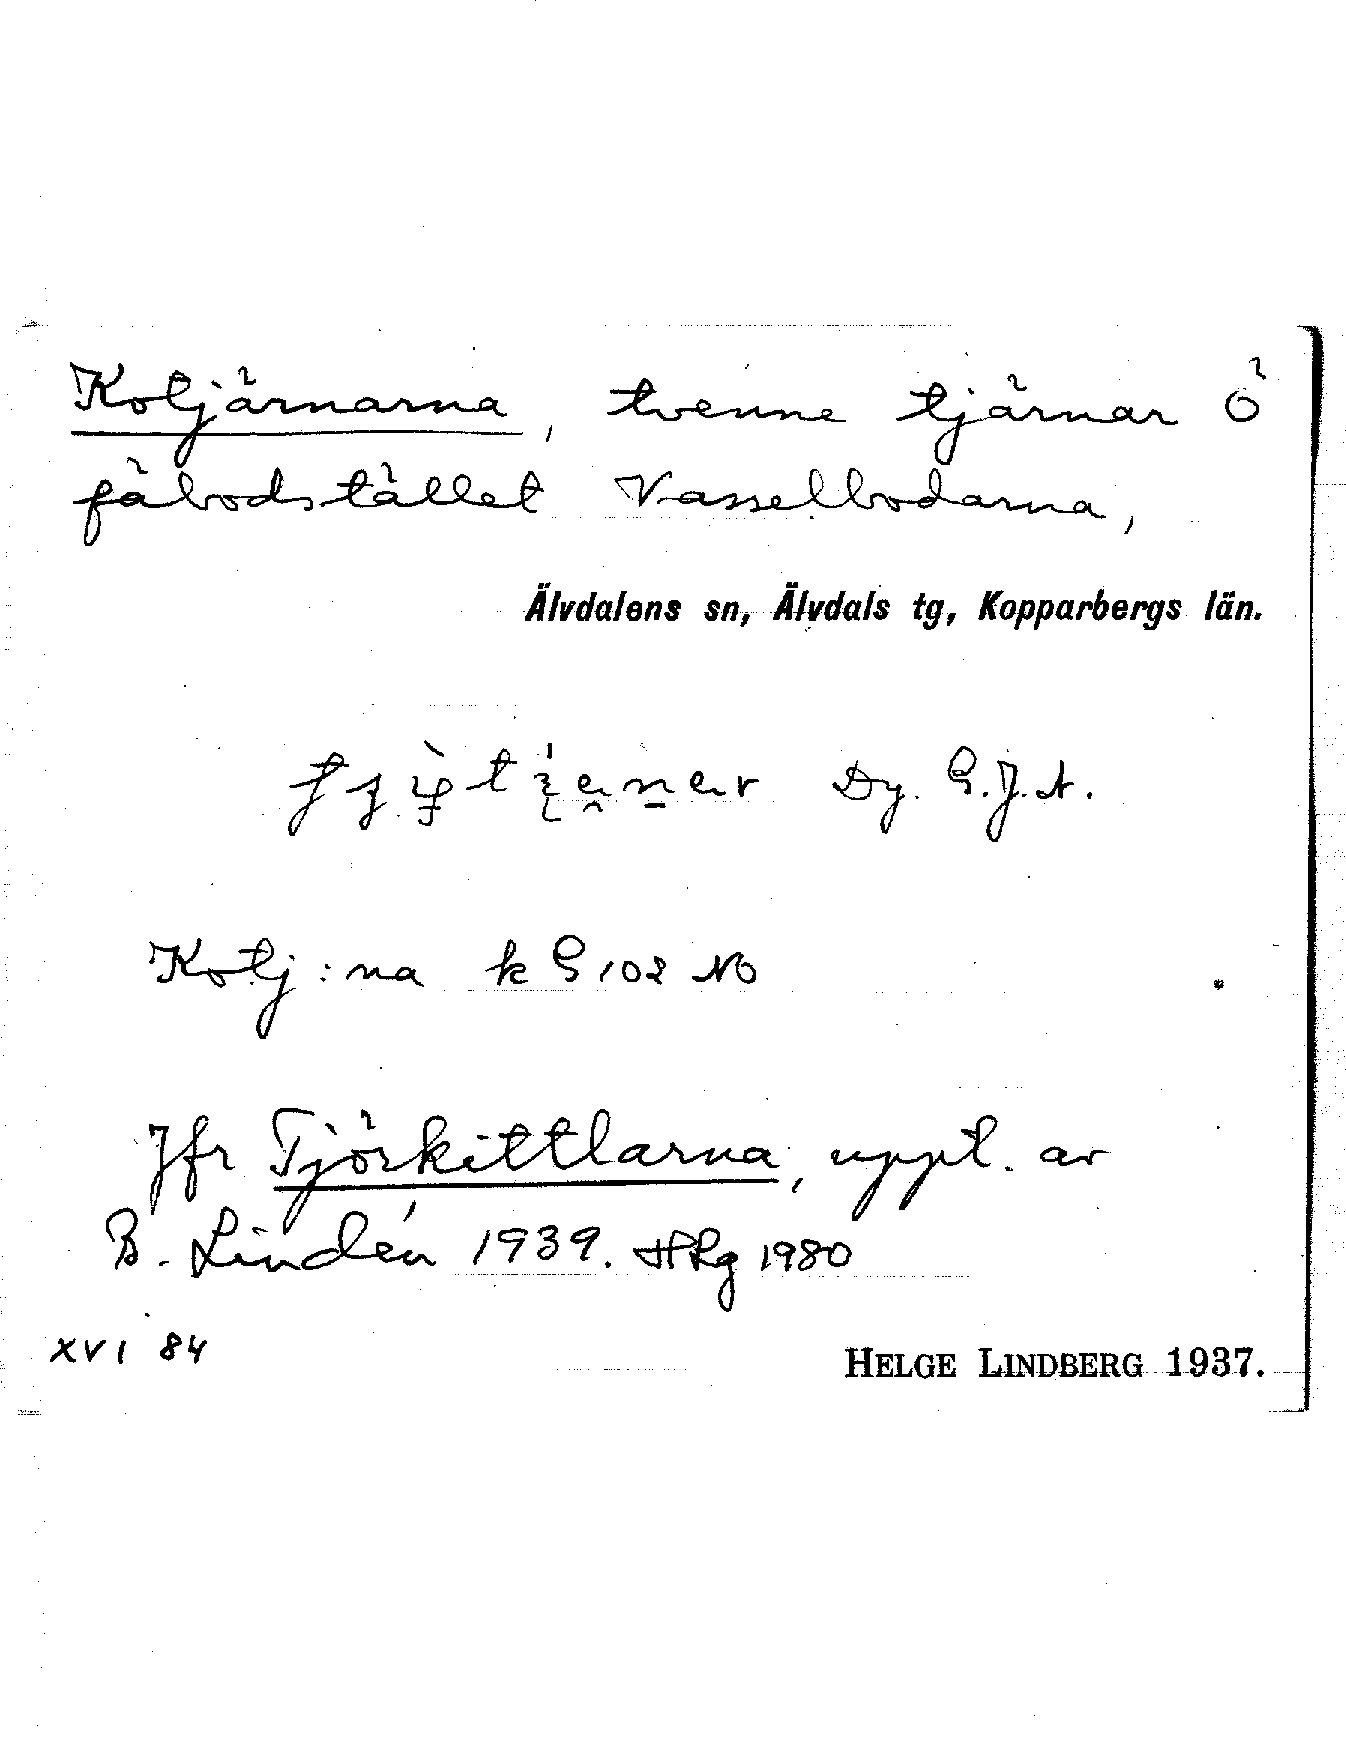 Kotjärnarna, tvenne tjärnar Ö
fäbodstället Vasselbodarna,
Älvdalens sn, Älvdals tg, Kopparbergs län.
Dy. G.J.A.
Kotj:na k G 102 NO
Jfr Tjörkittlarna, uppt. av
B. Lindén 1939. HLg 1980
XVI 84
HELGE LINDBERG 1937.